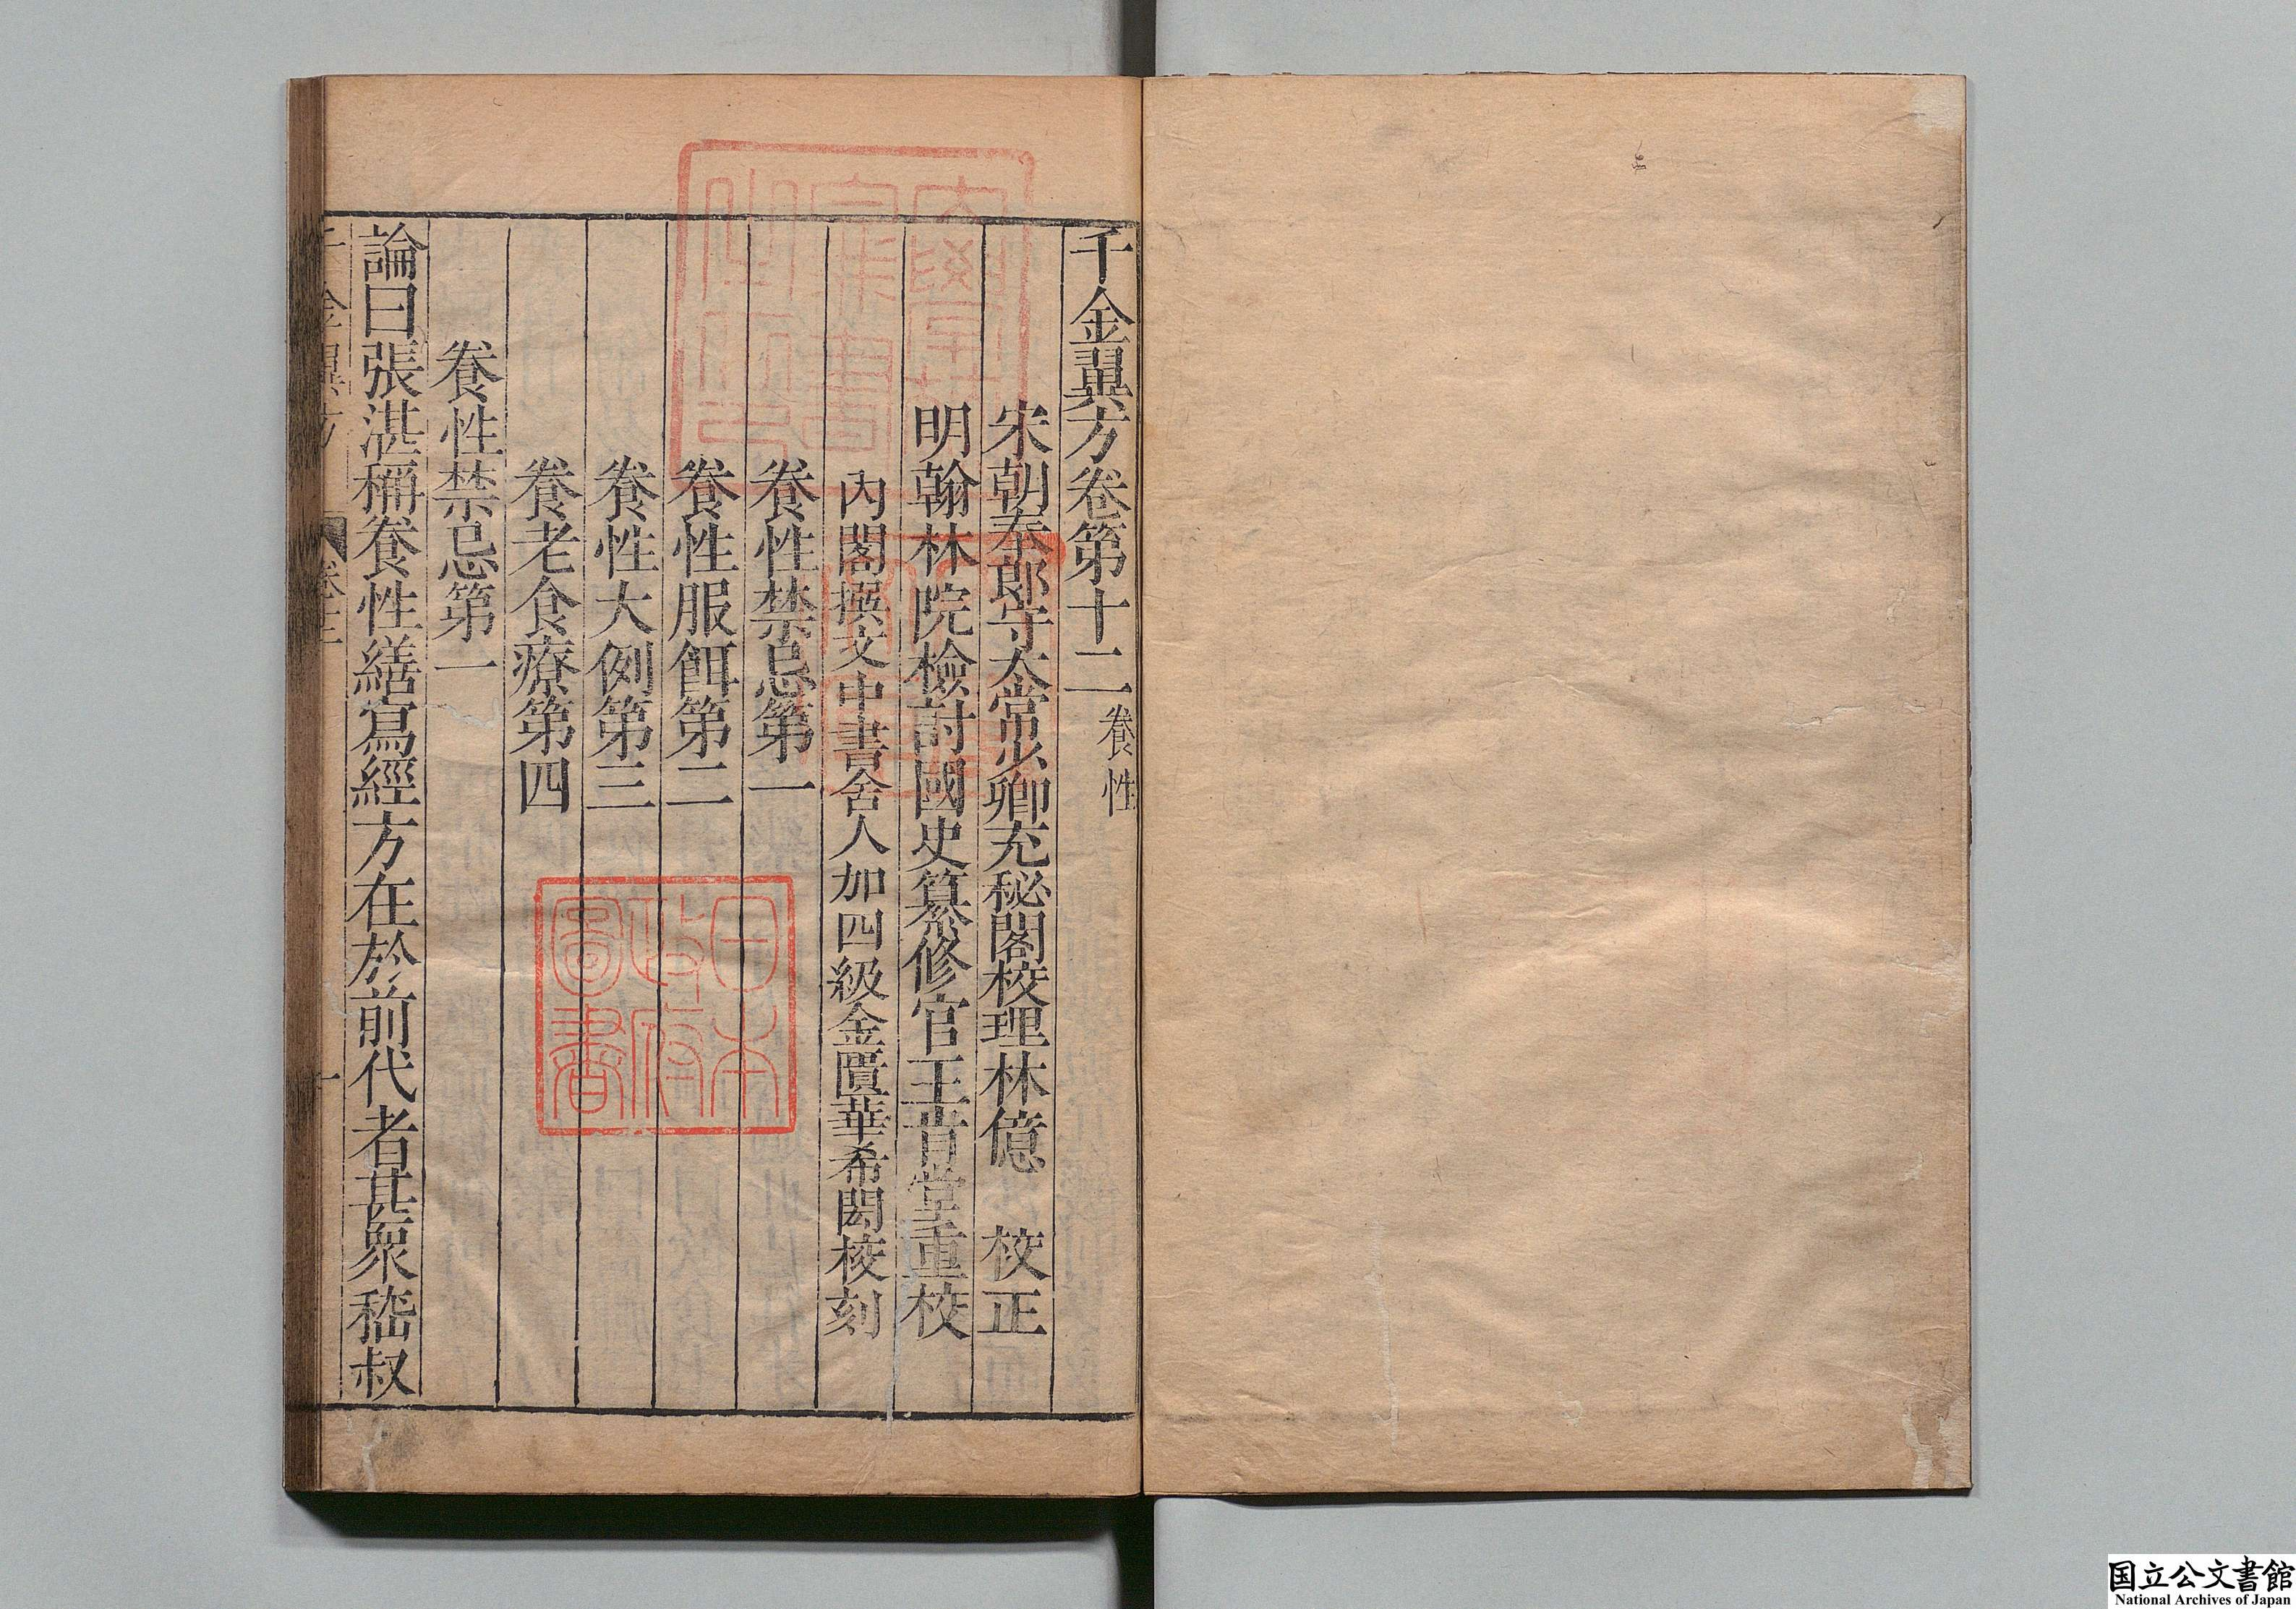 千金翼方卷第十二養性
宋朝奉郎守太常少卿充秘閣校理林億　校正
明翰林院檢討國史纂修官王肯堂重校
內閣撰文中書舍人加四級金匱華希閎校刻
養性禁忌第一
養性服餌第二
養性大例第三
養老食療第四
養性禁忌第一
論曰張湛稱養性繕寫經方在於前代者甚衆嵇叔
千金翼方
一
日本
政府
圖書
国立公文書館
National Archives of Japan